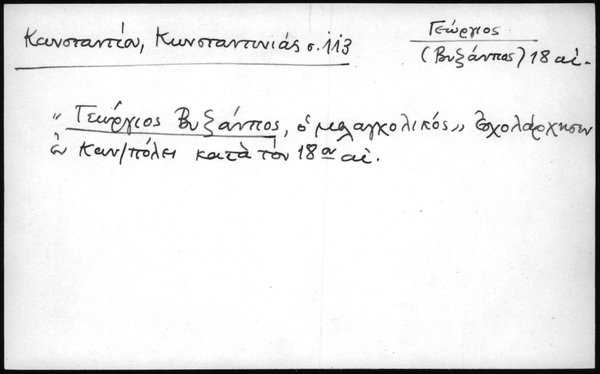 Κωνσταντίου, Κωνσταντινιάς σ. 113
Γεώργιος
(Βυζάντιος) 18 αἰ.
„ Γεώργιος Βυζάντιος, ὁ μελαγχολικός„ ἐσχολάρχησεν
ἐν Κων/πόλει κατὰ τὸν 18ον αἰ.